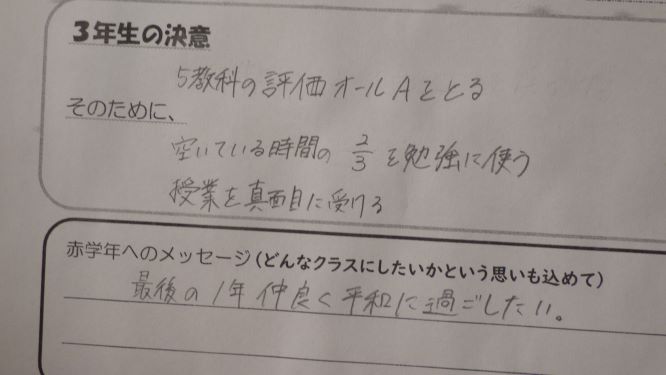 3年生の決意
5教科の評価オールAをとる
そのために、
空いている時間の 2/3 を勉強に使う
授業を真面目に受ける
赤学年へのメッセージ(どんなクラスにしたいかという思いも込めて)
最後の1年仲良く平和に過ごしたい。